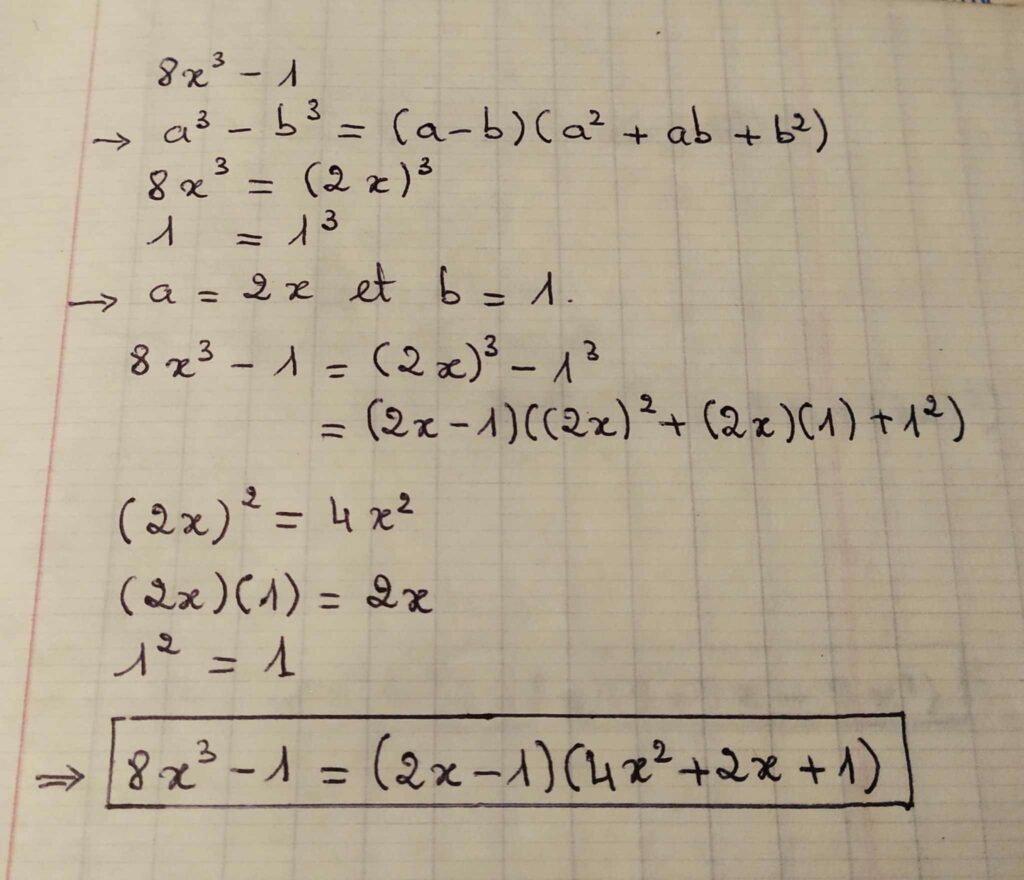 8x³ - 1
→ a³ - b³ = (a-b)(a² + ab + b²)
8x³ = (2x)³
1 = 1³
→ a = 2x et b = 1.
8x³ - 1 = (2x)³ - 1³
= (2x-1)((2x)² + (2x)(1) + 1²)
(2x)² = 4x²
(2x)(1) = 2x
1² = 1
⇒ 8x³ - 1 = (2x-1)(4x²+2x+1)